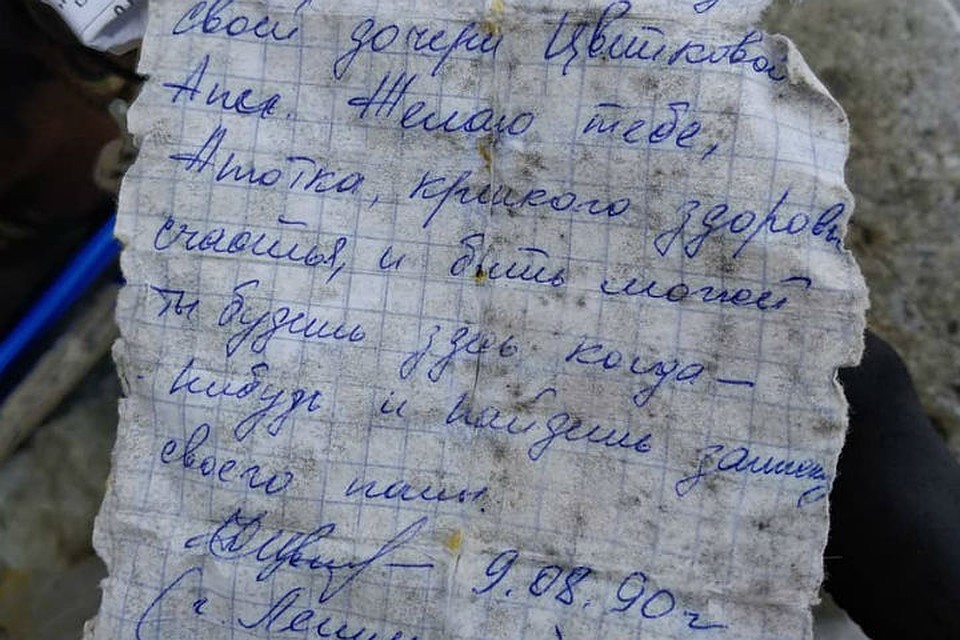 своей дочери Цветковой
Ане. Желаю тебе,
Анютка, крепкого здоровь
счастья, и быть может
ты будешь здесь когда-
нибудь и найдешь записку
своего папы.
9.08.90г
(г. Ленин